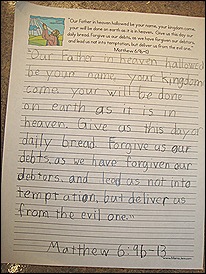 "Our Father in heaven hallowed be your name, your kingdom come,
your will be done on earth as it is in heaven. Give us this day our
daily bread. Forgive us our debts, as we have forgiven our debtors,
and lead us not into temptation, but deliver us from the evil one."
Matthew 6:9b-13
Our Father in heaven hallowed
be your name, your kingdom
come, your will be done
on earth as it is in
heaven. Give us this day our
daily bread. Forgive us our
debts, as we have forgiven our
debtors. and lead us not into
temptation, but deliver us
from the evil one."
Matthew 6:9b-13